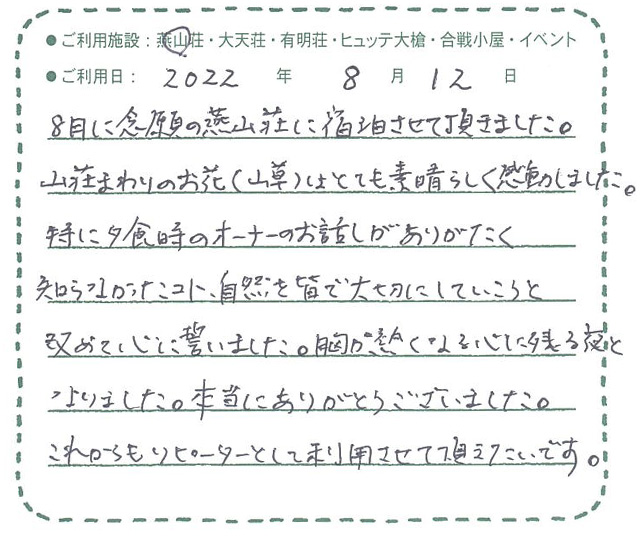 ●ご利用施設：燕山荘・大天荘・有明荘・ヒュッテ大槍・合戦小屋・イベント
●ご利用日：2022年8月12日
8月に念願の燕山荘に宿泊させて頂きました。
山荘まわりのお花(山草)はとても素晴らしく感動しました。
特に夕食時のオーナーのお話しがありがたく
知らなかったコト、自然を皆で大切にしていこうと
改めて心に誓いました。胸が熱くなる心に残る夜と
なりました。本当にありがとうございました。
これからもリピーターとして利用させて頂きたいです。